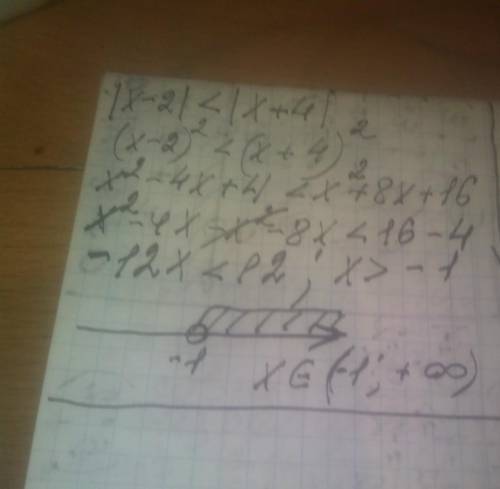 |x-2| < |x+4|
(x-2)² < (x+4)²
x²-4x+4 < x²+8x+16
x²-4x-x²-8x < 16-4
-12x < 12 ; x > -1
-1
x∈(-1; +∞)